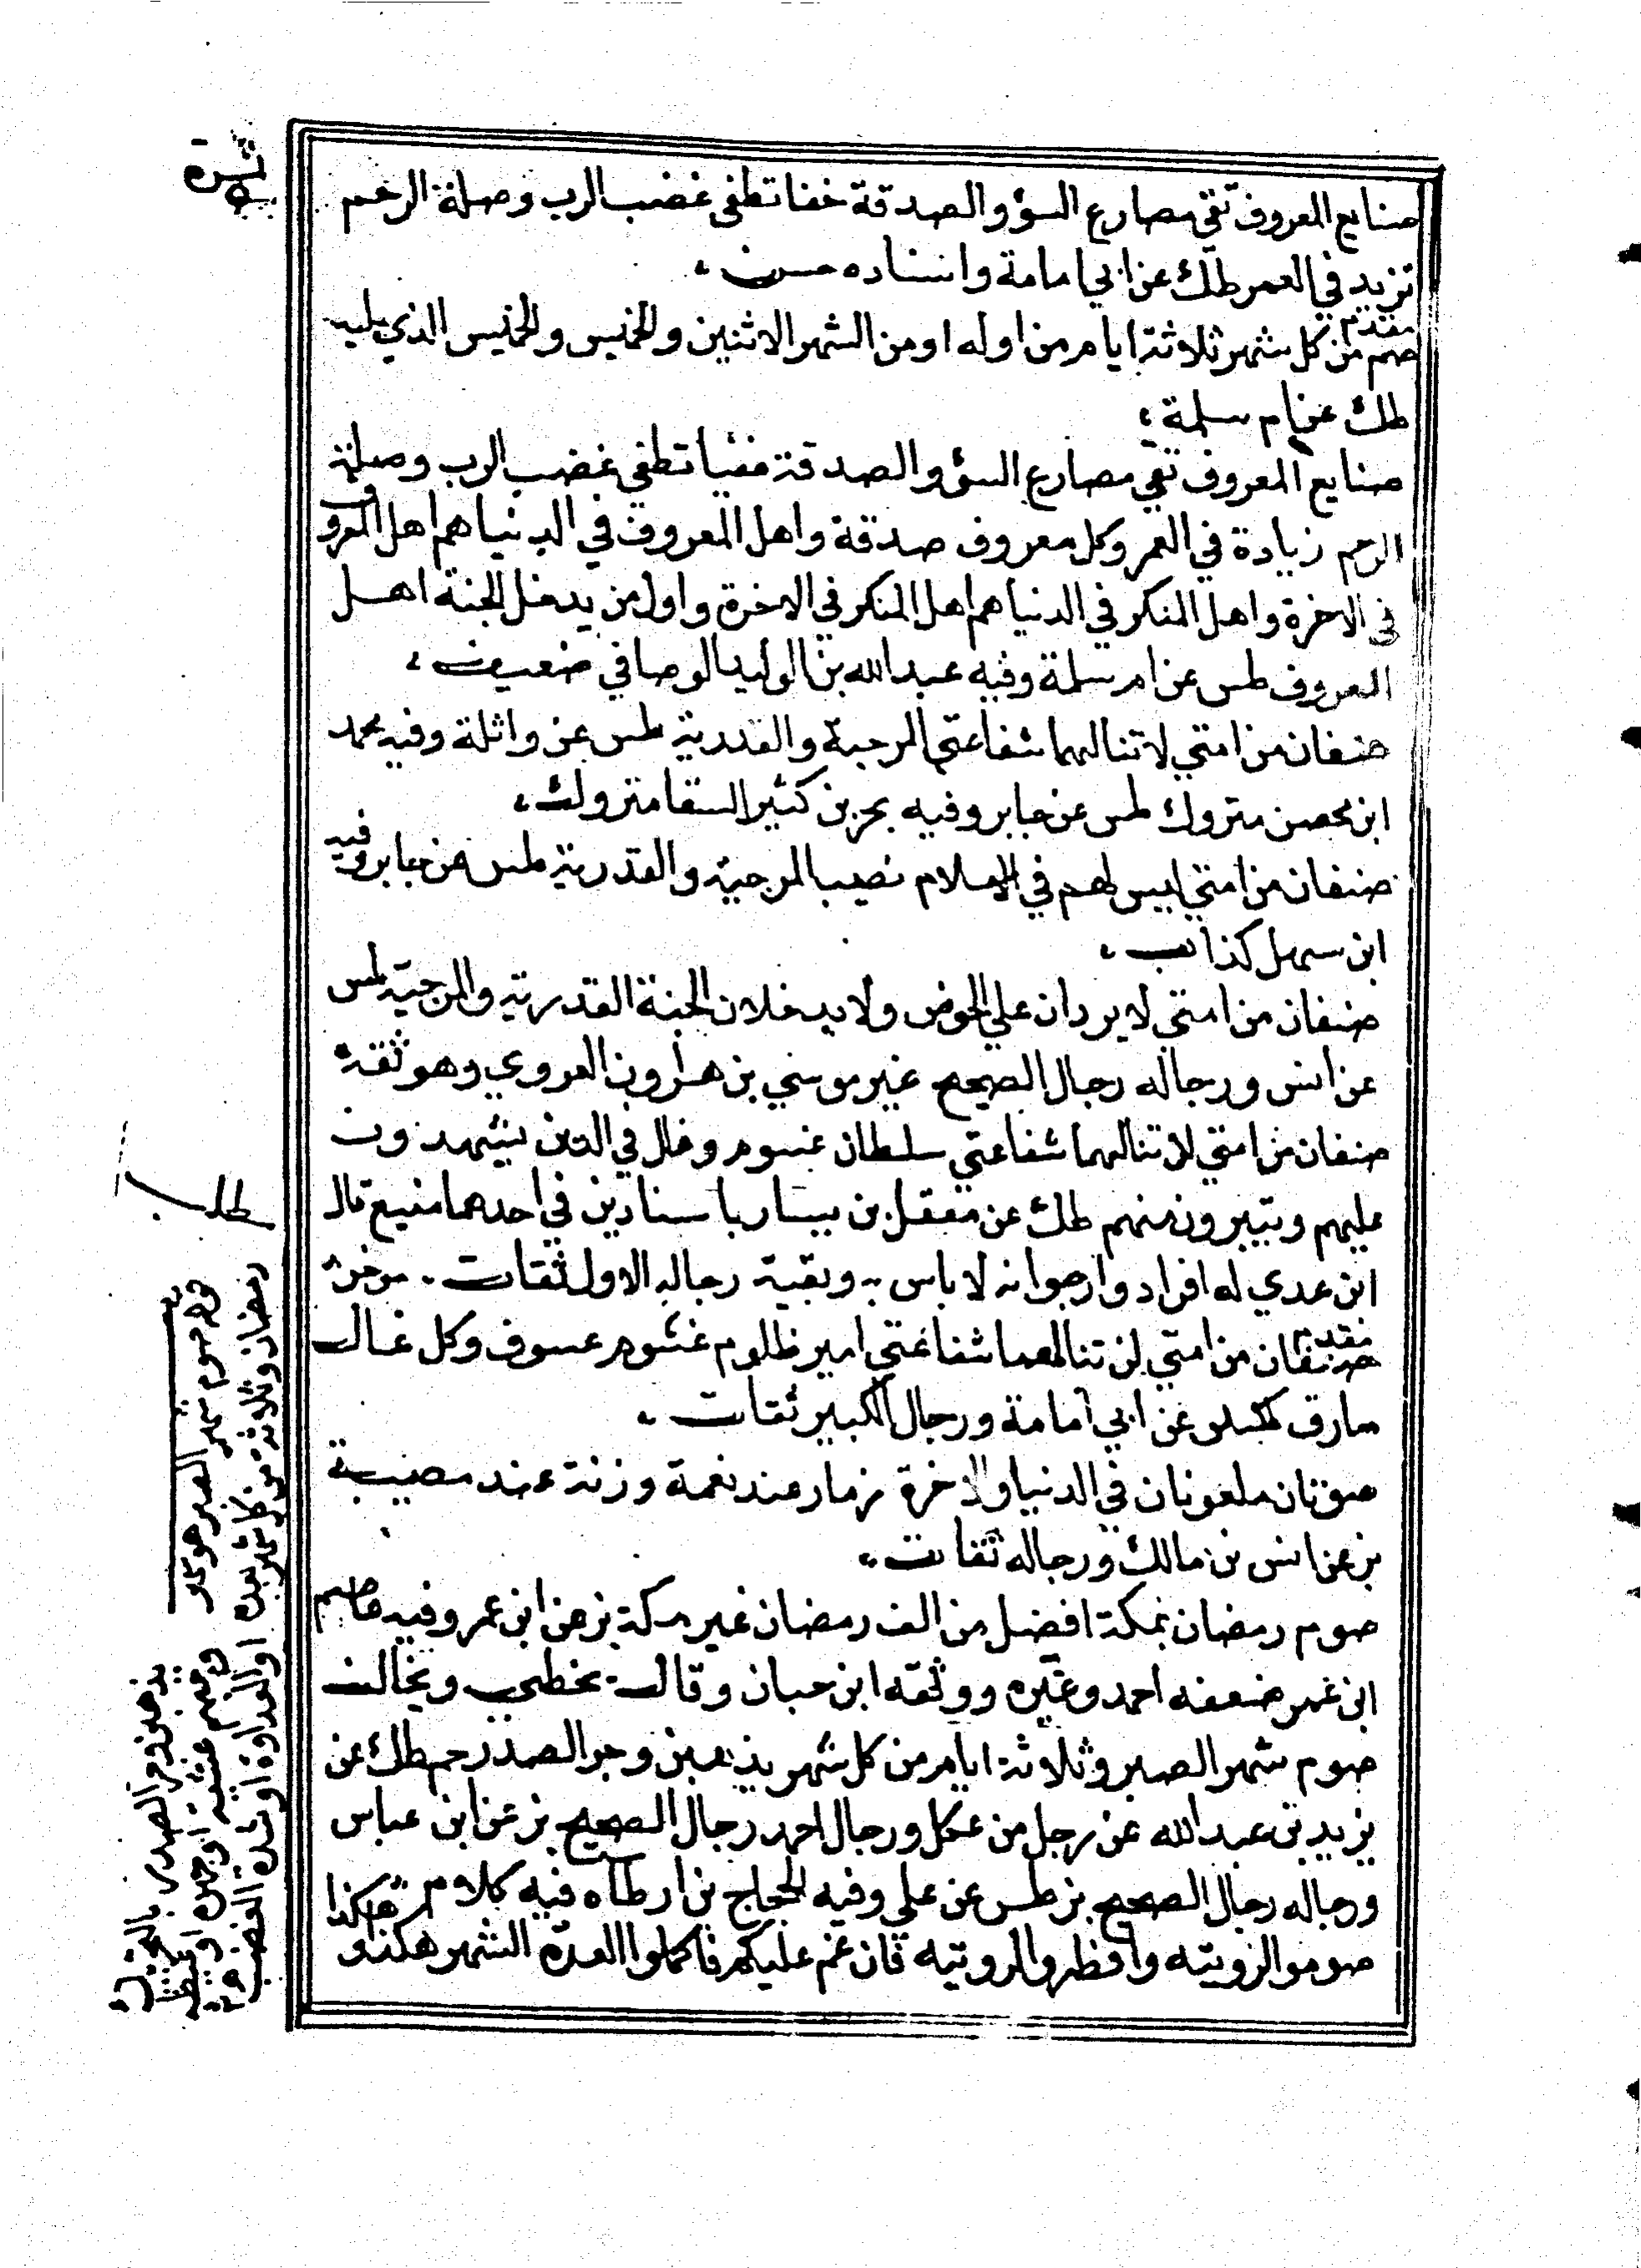 صنايع المعروف تقي مصارع السؤ والصدقة خفا تطفى غضب الرب وصلة الرحم
تزيد في العمر طك عن ابي امامة واسناده حسن
مقدم
صم من كل شهر ثلاثة ايام من اوله او من الشهر الاثنين والخميس والخميس الذي يليه
طك عن ام سلمة
صنايع المعروف تقي مصارع السؤ والصدقة خفيا تطفي غضب الرب وصلة
الرحم زيادة في العمر وكل معروف صدقة واهل المعروف في الدنيا هم اهل المعروف
في الاخرة واهل المنكر في الدنيا هم اهل المنكر في الاخرة واول من يدخل الجنة اهل
المعروف طس عن ام سلمة وفيه عبد الله بن الوليد الوصافي ضعيف
صنفان من امتي لا تنالهما شفاعتي المرجية والقدرية طس عن واثلة وفيه محمد
ابن محصن متروك طس عن جابر وفيه بحر بن كثير السقا متروك
صنفان من امتي ليس لهم في الاسلام نصيب المرجية والقدرية طس عن جابر وفيه
ابن سهل كذاب
صنفان من امتي لا يردان علي الحوض ولا يدخلان الجنة القدرية والمرجية طس
عن انس ورجاله رجال الصحيح غير موسي بن هارون الفروي وهو ثقة
صنفان من امتي لا تنالهما شفاعتي سلطان غشوم وغال في الدين يشهدون
عليهم ويتبرون منهم طك عن معقل بن يسار باسنادين في احدهما منيع قال
ابن عدي له افراد وارجوا انه لا باس به وبقية رجاله الاول ثقات موخر
مقدم
صنفان من امتي لن تنالهما شفاعتي امير ظلوم غشوم عسوف وكل غال
مارق طكس عن ابي امامة ورجال الكبير ثقات
صوتان ملعونان في الدنيا والاخرة مزمار عند نعمة ورنة عند مصيبة
بز عن انس بن مالك ورجاله ثقات
صوم رمضان بمكة افضل من الف رمضان غير مكة بز عن ابن عمر وفيه عاصم
ابن عمر ضعفه احمد وغيره ووثقه ابن حبان وقال يخطي ويخالف
صوم شهر الصبر وثلاثة ايام من كل شهر يذهبن وحر الصدر حم طك عن
يزيد بن عبد الله عن رجل من عكل ورجال احمد رجال الصحيح بز عن ابن عباس
ورجاله رجال الصحيح بز طس عن علي وفيه الحجاج بن ارطاه فيه كلام
صوموا لرويته وافطروا لرويته فان غم عليكم فاكملوا العدة الشهر هكذا و هكذا
قوله صوم شهر الصبر هو شهر
رمضان وثلاثة من كل شهر
يذهبن وحر الصدر